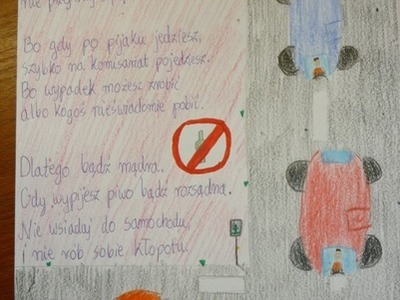 nie
Bo gdy po pijaku jedziesz,
szybko na komisariat pojedziesz.
Bo wypadek możesz zrobić
albo kogoś nieświadomie pobić.
Dlatego bądź mądra..
Gdy wypijesz piwo bądź rozsądna.
Nie wsiadaj do samochodu,
i nie rób sobie kłopotu.